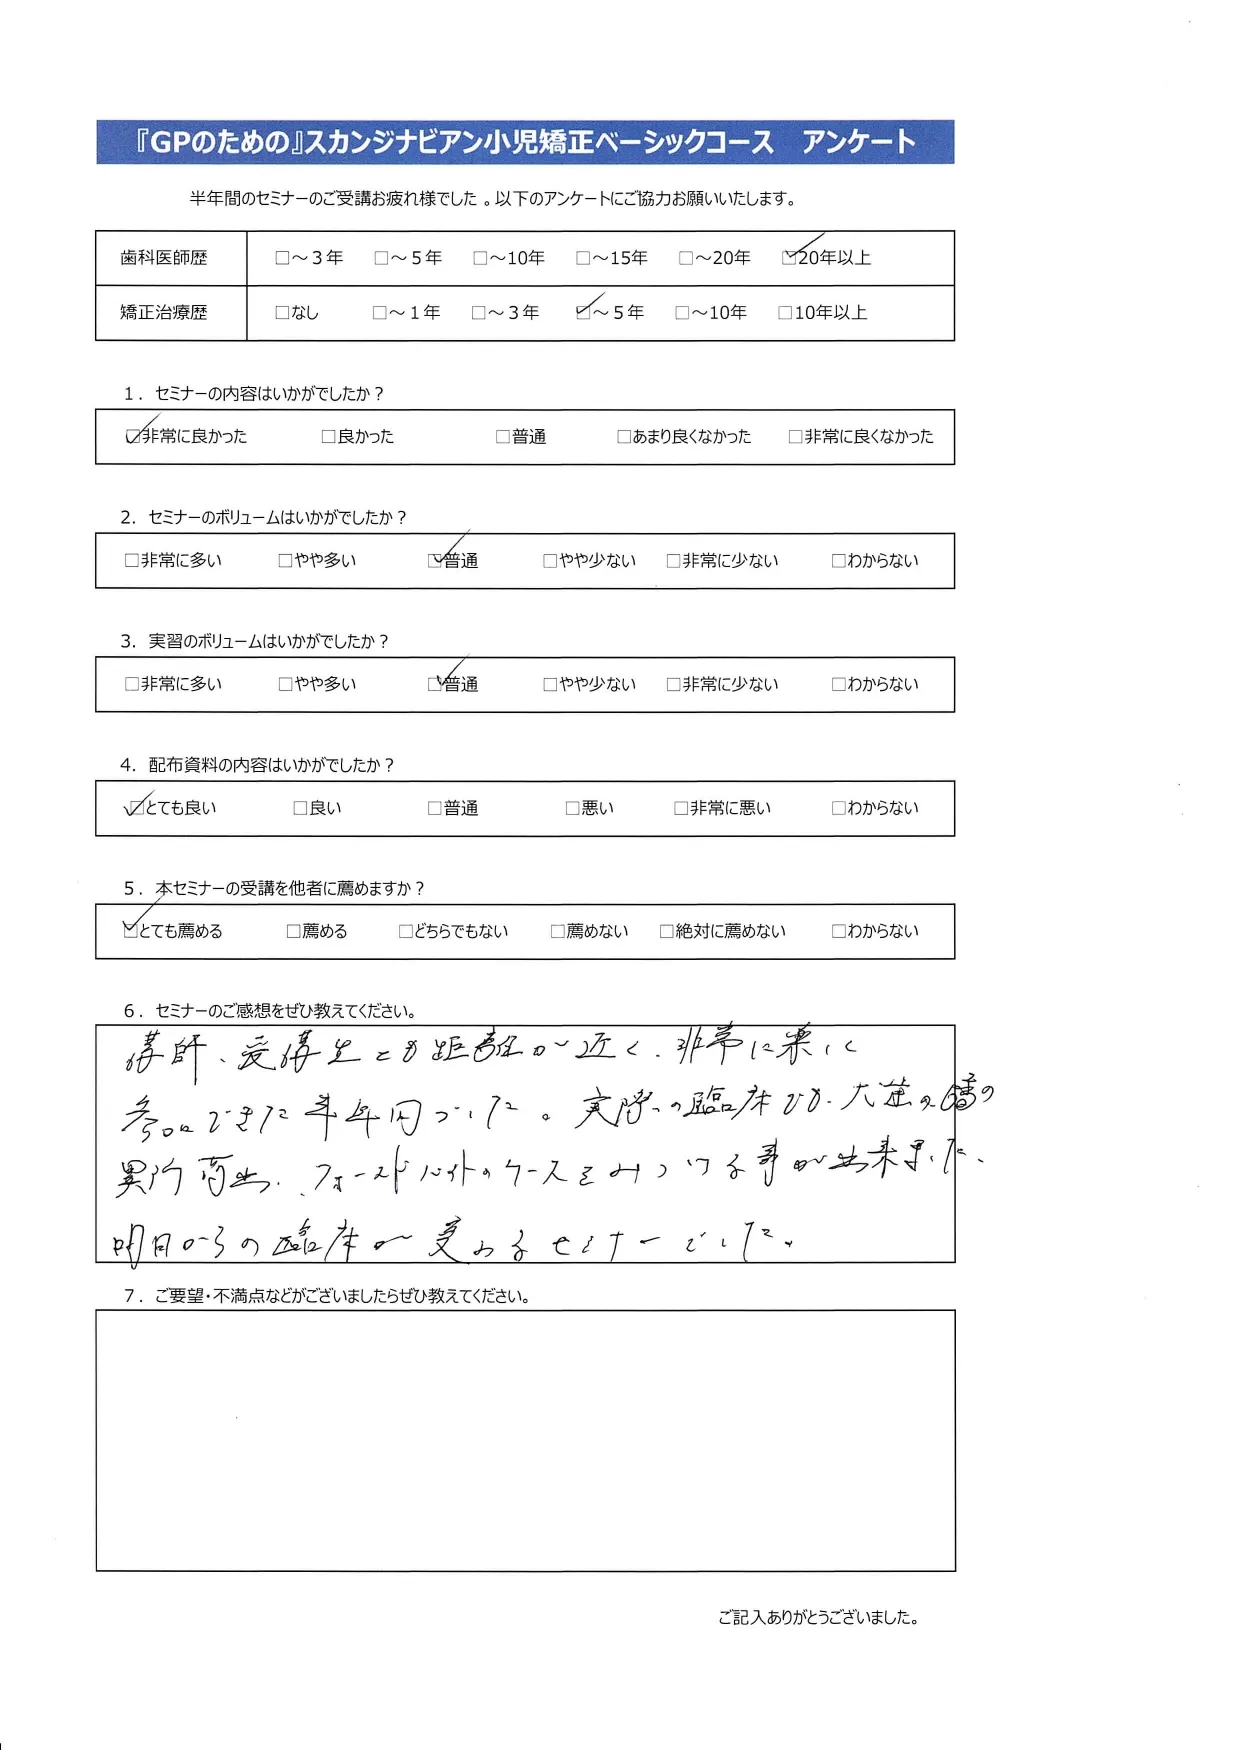 『GPのための』スカンジナビアン小児矯正ベーシックコース　アンケート
半年間のセミナーのご受講お疲れ様でした。以下のアンケートにご協力お願いいたします。
歯科医師歴 □～３年 □～５年 □～10年 □～15年 □～20年 ☑20年以上
矯正治療歴 □なし □～１年 □～３年 ☑～５年 □～10年 □10年以上
１．セミナーの内容はいかがでしたか？
☑非常に良かった □良かった □普通 □あまり良くなかった □非常に良くなかった
２．セミナーのボリュームはいかがでしたか？
□非常に多い □やや多い ☑普通 □やや少ない □非常に少ない □わからない
３．実習のボリュームはいかがでしたか？
□非常に多い □やや多い ☑普通 □やや少ない □非常に少ない □わからない
４．配布資料の内容はいかがでしたか？
☑とても良い □良い □普通 □悪い □非常に悪い □わからない
５．本セミナーの受講を他者に薦めますか？
☑とても薦める □薦める □どちらでもない □薦めない □絶対に薦めない □わからない
６．セミナーのご感想をぜひ教えてください。
講師、受講生とも距離が近く、非常に楽しく
参加できた半年間でした。実際の臨床でも、大歯の
異所萌出、フォースドバイトのケースをみつける事が出来ました、
明日からの臨床が変わるセミナーでした。
７．ご要望・不満点などがございましたらぜひ教えてください。
ご記入ありがとうございました。